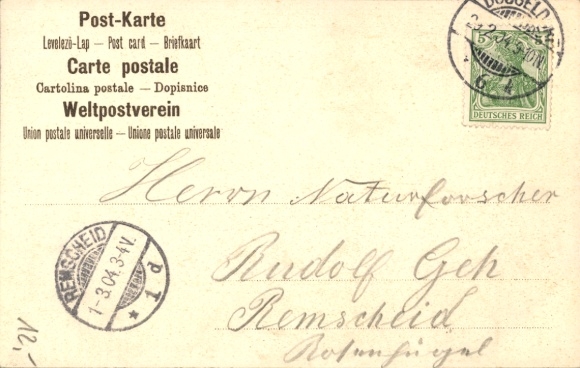 Post-Karte
Levelező-Lap – Post card – Briefkaart
Carte postale
Cartolina postale – Dopisnice
Weltpostverein
Union postale universelle – Unione postale universale
5
DEUTSCHES REICH
Herrn Naturforscher
Rudolf Geh
Remscheid
Rosenhügel
REMSCHEID
1-3.04.3-4V.
* 1 d
12,-